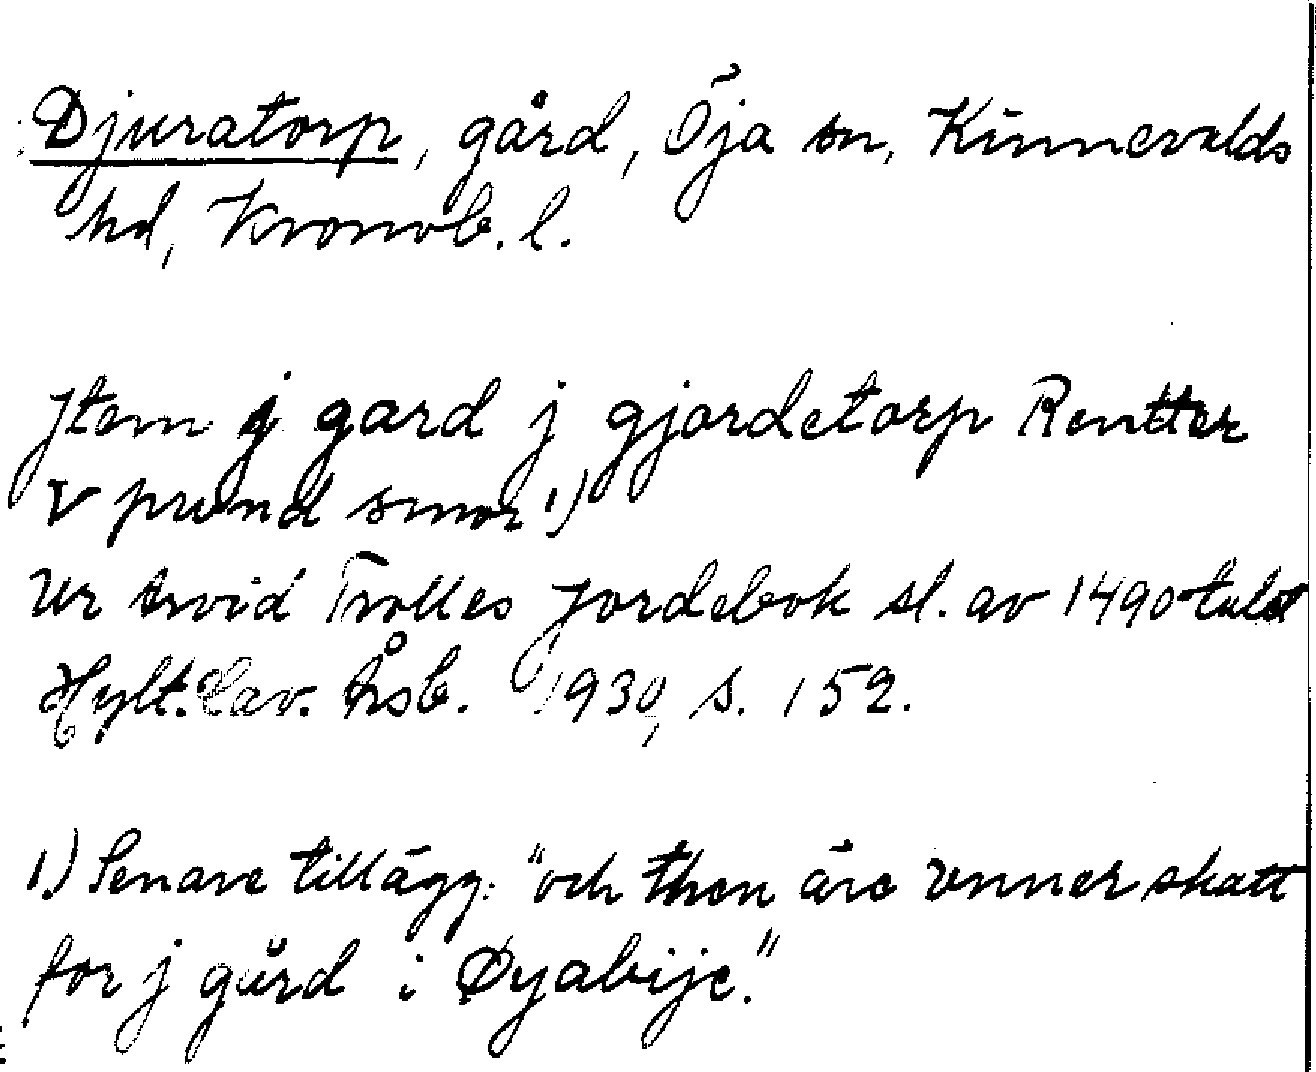 Djuratorp, gård, Öja sn, Kinnevalds
hd, Kronob. l.
Jtem j gard j gjordetorp Rentter
V pund smor 1)
Ur Arvid Trolles jordebok sl. av 1490-talet
Hylt. Cav. Årsb. 1930, s. 152.
1.) Senare tillägg: "och then äre vnner skatt
for j gård i Øyabije."